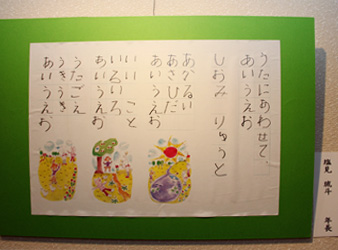 うたにあわせて
あいうえお
しおみ りゅうと
あかるい
あさひだ
あいうえお
いい こと
いろいろ
あいうえお
うたごえ
うきうき
あいうえお
塩見 琉斗 年長